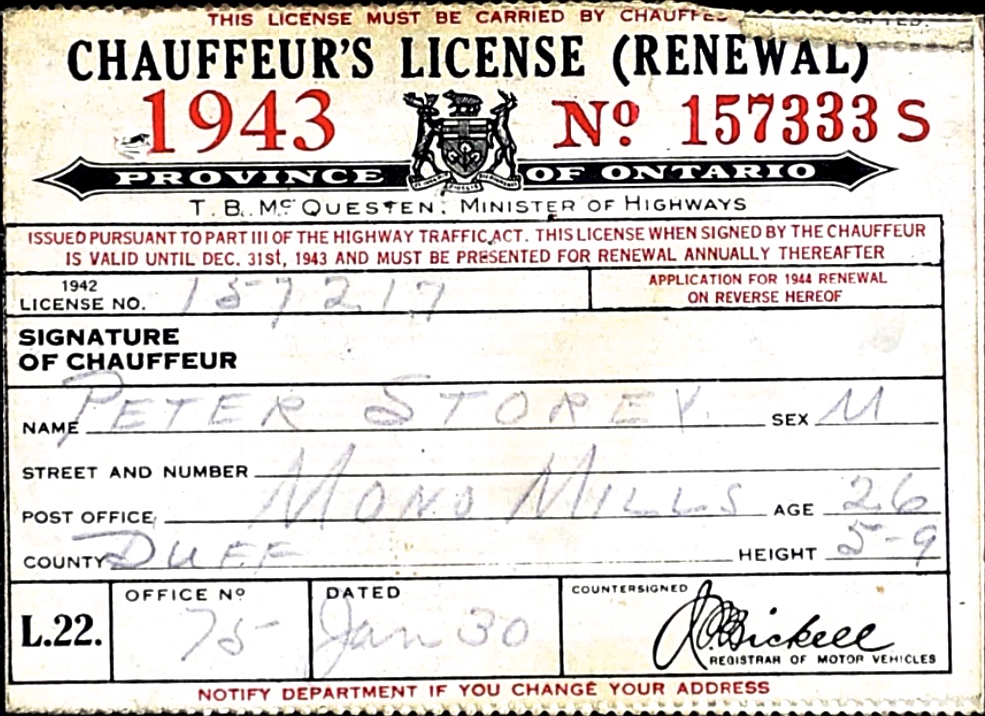 THIS LICENSE MUST BE CARRIED BY
CHAUFFEUR'S LICENSE (RENEWAL)
1943 Nº 157333 S
PROVINCE OF ONTARIO
T. B. McQUESTEN, MINISTER OF HIGHWAYS
ISSUED PURSUANT TO PART III OF THE HIGHWAY TRAFFIC ACT. THIS LICENSE WHEN SIGNED BY THE CHAUFFEUR
IS VALID UNTIL DEC. 31st, 1943 AND MUST BE PRESENTED FOR RENEWAL ANNUALLY THEREAFTER
1942
LICENSE NO. 157217
APPLICATION FOR 1944 RENEWAL
ON REVERSE HEREOF
SIGNATURE
OF CHAUFFEUR
NAME PETER STOREY. SEX M
STREET AND NUMBER
POST OFFICE MONO MILLS AGE 26
COUNTY DUFF HEIGHT 5-9
L.22.
OFFICE Nº
75
DATED
Jan 30
COUNTERSIGNED
Bickell
REGISTRAR OF MOTOR VEHICLES
NOTIFY DEPARTMENT IF YOU CHANGE YOUR ADDRESS